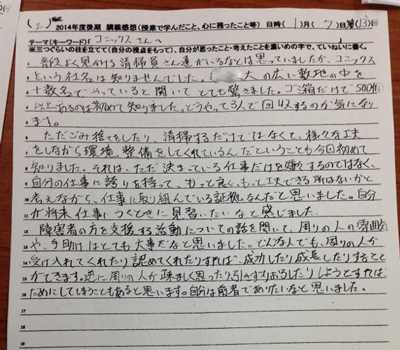 2014年度後期 講義感想(授業で学んだこと、心に残ったこと等) 日時(11月(7)日第(13)回
テーマ(キーワード)「コニックスさん」
※三つぐらいの柱を立てて(自分の視点をもって)、自分が思ったこと・考えたことを濃いめの字で、ていねいに書く。
1 普段よく見かける清掃員さん達がいるなとは思っていましたが、コニックス
2 という社名は知りませんでした。 大の広い敷地の中を
3 十数名でやっていると聞いて とても驚きました。ゴミ箱だけで500個
4 以上あるのは初めて知りました。どうやって3人で回収するのか気になり
5 ます。
6 ただごみ捨てをしたり、清掃するだけではなくて、様々な工夫
7 をしながら環境整備をしてくれているんだということも今回初めて
8 知りました。それは、ただ決まっている仕事だけを嫌々するのではなく、
9 自分の仕事に誇りを持って、もっと良く、もっと工夫できる所はないかと
10 考えながら、仕事に取り組んでいる証拠なんだと思いました。自分
11 が将来仕事につくときに見習いたいなと感じました。
12 障害者の方を支援する活動についての話を聞いて、周りの人の雰囲気
13 や、手助けはとても大事だなと思いました。どんな人でも、周りの人が
14 受け入れてくれたり認めてくれたりすれば、成功したり成長したりすること
15 ができます。逆に周りの人が疎ましく思ったり引きずりおろしたりしようとすれば
16 だめにしてしまうこともあると思います。自分は前者でありたいなと思いました。
17
18